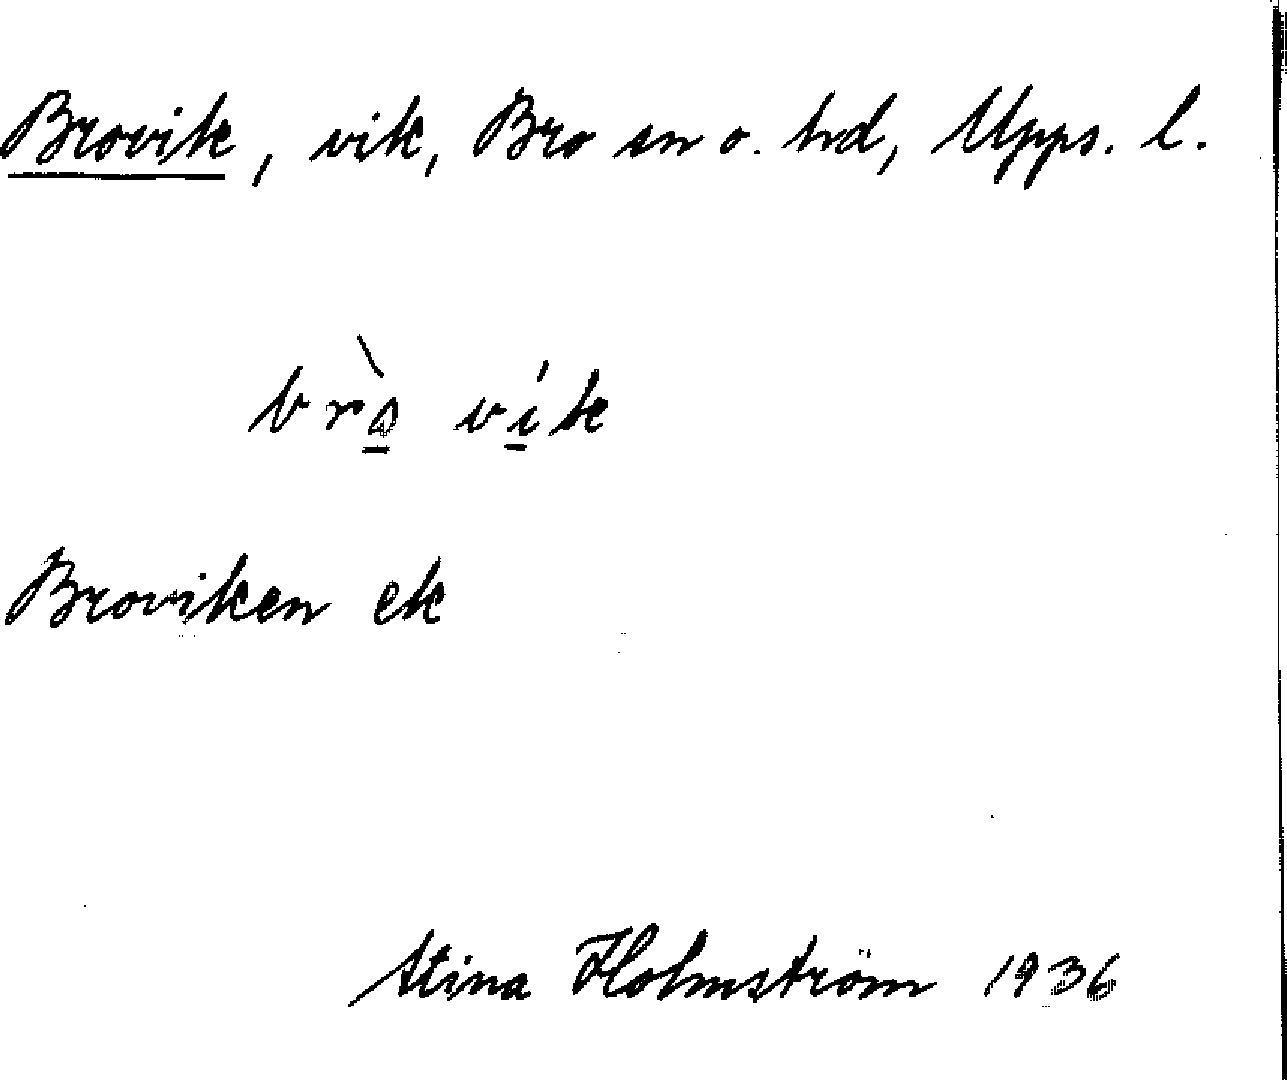 Brovik, vik, Bro sn o. hd, Upps. l.
brò̲ ví̲k
Broviken ek
Stina Holmström 1936